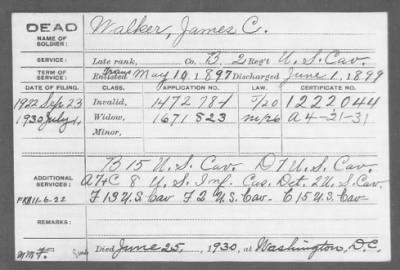 DEAD
NAME OF SOLDIER: Walker, James C.
SERVICE: Late rank, Co. B, 2 Reg't U.S. Cav.
TERM OF SERVICE: Trans Enlisted May 10, 1897 Discharged June 1, 1899
DATE OF FILING. CLASS. APPLICATION NO. LAW. CERTIFICATE NO.
1922 Sep 23 Invalid, 1472784 1222044
1930 July Widow, 1671823 A4-21-31
Minor,
ADDITIONAL SERVICES: B 15 U.S. Cav. D 7 U.S. Cav.
A7+C 8 U.S. Inf. Cas. Det. 2 U.S. Cav.
F 13 U.S. Cav F 2 U.S. Cav C 15 U.S. Cav
11-6-22
REMARKS:
Died June 25, 1930, at Washington, D.C.